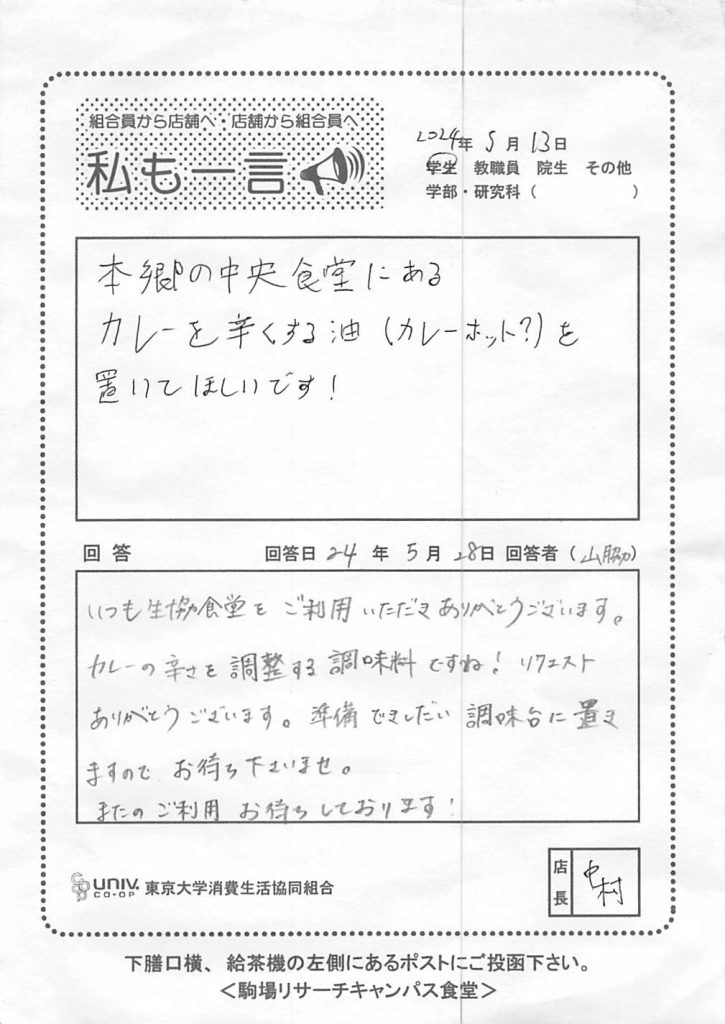 組合員から店舗へ 店舗から組合員へ
私も一言
2024年 5月 13日
学生 教職員 院生 その他
学部・研究科( )
本郷の中央食堂にある
カレーを辛くする油(カレーホット?)を
置いてほしいです!
回答 回答日 24年 5月 28日 回答者(山脇)
いつも生協食堂をご利用いただきありがとうございます。
カレーの辛さを調整する調味料ですね! リクエスト
ありがとうございます。準備できしだい調味台に置き
ますので お待ち下さいませ。
またのご利用 お待ちしております!
UNIV. CO-OP 東京大学消費生活協同組合
店長 中村
下膳口横、給茶機の左側にあるポストにご投函下さい。
<駒場リサーチキャンパス食堂>